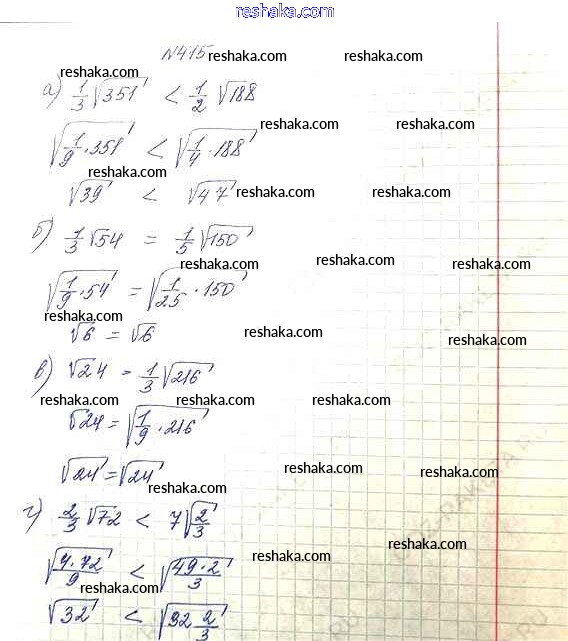 reshaka.com
N415 reshaka.com reshaka.com
reshaka.com
а) 1/3 √351 < 1/2 √188
reshaka.com
√(1/9 · 351) < √(1/4 · 188)
reshaka.com
√39 < √47 reshaka.com reshaka.com
б) 1/3 √54 = 1/5 √150
reshaka.com reshaka.com reshaka.com
√(1/9 · 54) = √(1/25 · 150)
reshaka.com
√6 = √6 reshaka.com reshaka.com
в) √24 = 1/3 √216
reshaka.com reshaka.com reshaka.com
√24 = √(1/9 · 216)
√24 = √24 reshaka.com reshaka.com
reshaka.com
г) 2/3 √72 < 7 √(2/3)
reshaka.com
√(4·72/9) < √(49·2/3) reshaka.com
reshaka.com
√32 < √(32 2/3) reshaka.com